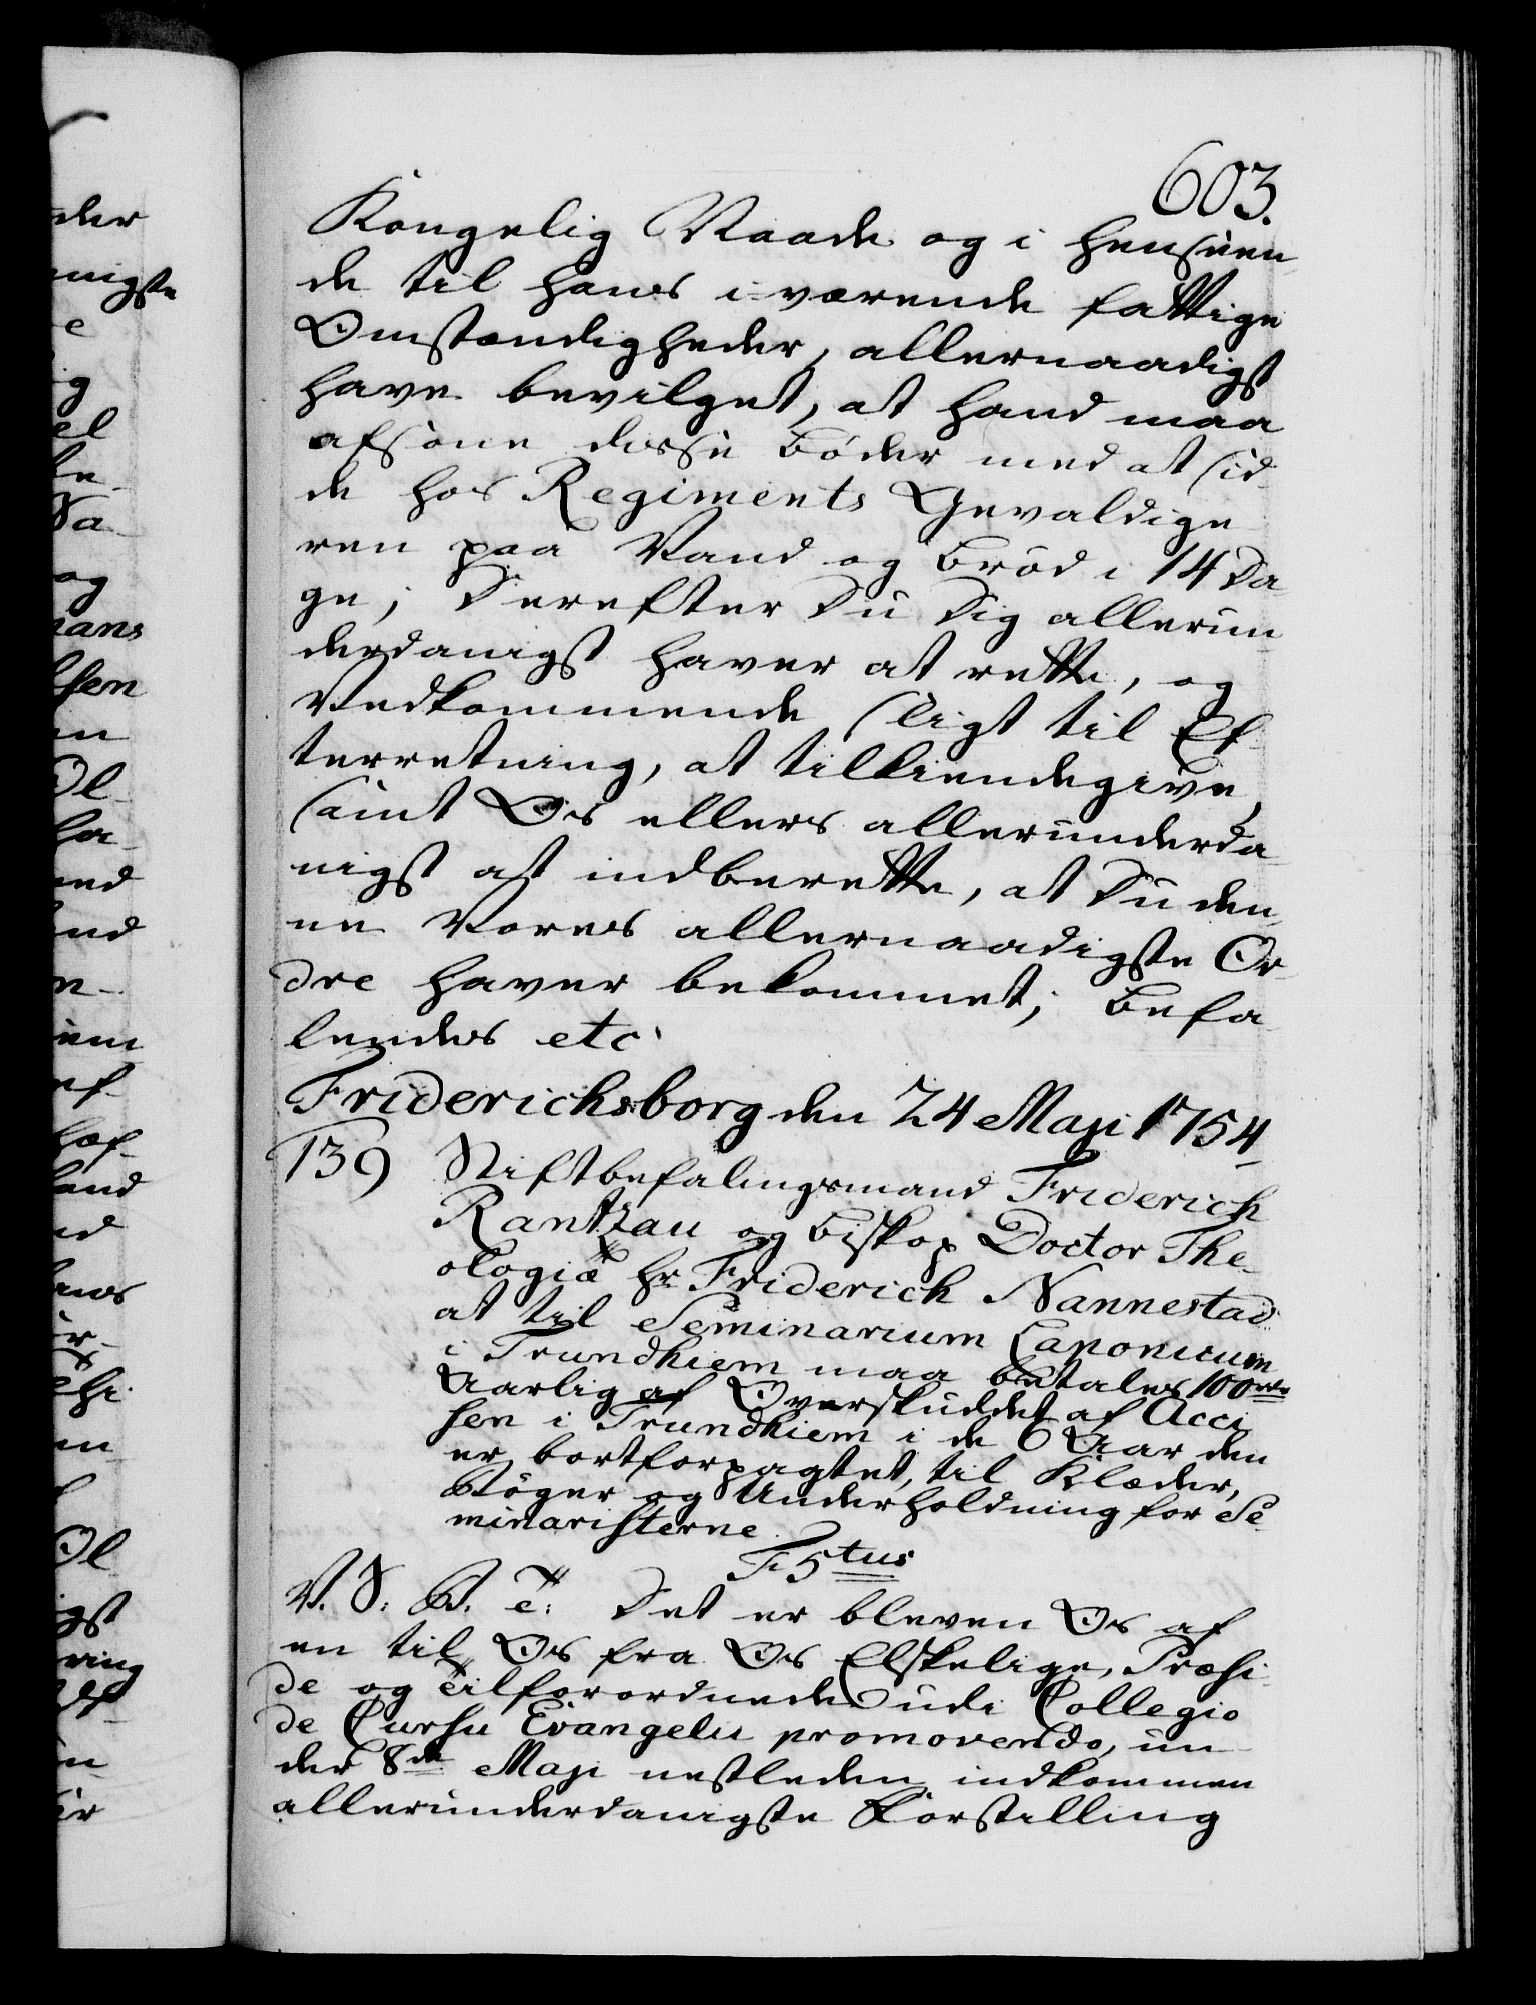 603.
Kongelig Naade og i henseen
de til hans i værende fattige
Omstændigheder, allernaadigst
have bevilget, at hand maa
afsone disse Bøder med at sid
de hos Regiments Gevaldige
ren paa Vand og Brød i 14 Da
ge; Derefter Du Dig allerun
derdanigst haver at rette, og
Vedkommende sligt til Ef
terretning, at tilkiendegive,
samt Os ellers allerunderda
nigst at indberette, at Du den
ne Vores allernaadigste Or
dre haver bekommet; Befa
lendes etc.
Friderichsborg den 24 Maji 1754
139 Stiftbefalingsmand Friderich
Rantzau og Biskop Doctor The
ologiæ hr Friderich Nannestad
at til Seminarium Laponicum
i Trundhiem maa betales 100 rdr
Aarlig af Overskuddet af Acci
sen i Trundhiem i de 6 Aar den
er bortforpagtet, til Klæder,
Bøger og Underholdning for Se
minaristerne.
F 5tus
V. S: B. T: Det er bleven Os af
en til Os fra Os Elskelige, Præsi
de og Tilforordnede udi Collegio
de Cursu Evangelii promovendo, un
der 8de Maji nestleden indkommen
allerunderdanigste Forestilling